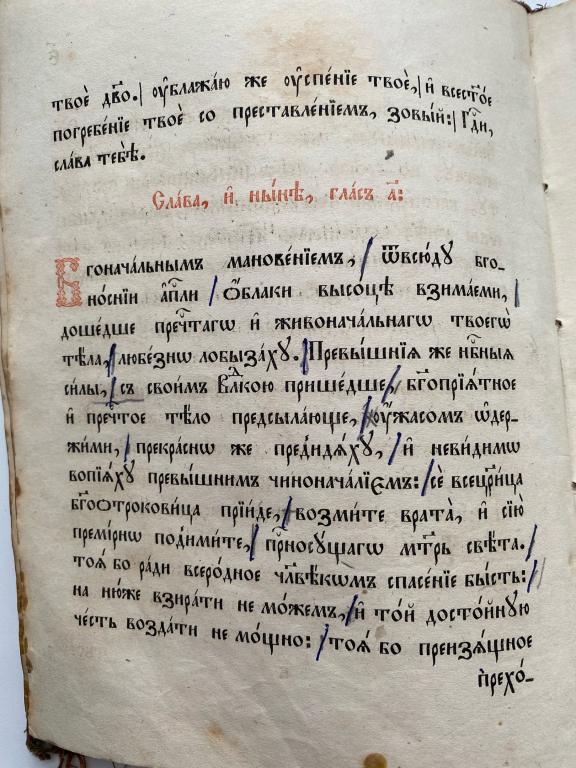 твоѐ дв҃о. ᲂу҆блажа́ю же ᲂу҆спе́нїе твоѐ, и҆ всест҃о́е
погребе́нїе твоѐ со преставле́нїемъ, зовы́й: Гд҇и,
сла́ва тебѣ̀.
Сла́ва, и҆ ны́нѣ, гла́съ а҃:
Бгонача́льнымъ манове́нїемъ, ѿвсю́дꙋ бг҃о-
но́снїи а҆п҇ли ѻ҆́блаки высо́цѣ взима́еми,
доше́дше преч҇тагѡ и҆ живонача́льнагѡ твоегѡ̀
тѣ́ла, любе́знѡ лобыза́хꙋ. Превы́шнїѧ же нб҇ныѧ
си́лы, съ свои́мъ Влⷣкою прише́дше, бг҃опрїѧ́тное
и҆ преч҇тое тѣ́ло предсыла́юще, ᲂу҆́жасомъ ѡ҆дер-
жи́ми, прекра́снѡ же преди́дѧхꙋ, и҆ неви́димѡ
вопїѧ́хꙋ превы́шнимъ чинонача́лїємъ: сѐ всецр҃и́ца
бг҃оотрокови́ца прїи́де, возми́те врата̀, и҆ сїю̀
преми́рнѡ под̾ими́те, пр҇носꙋ́щагѡ мт҃рь свѣ́та.
тоѧ́ бо ра́ди всеро́дное чл҃вѣ́кѡмъ спасе́нїе бы́сть:
на ню́же взира́ти не мо́жемъ, и҆ то́й досто́йнꙋю
че́сть возда́ти не мо́щно: тоѧ́ бо преизѧ́щное
прехо́-